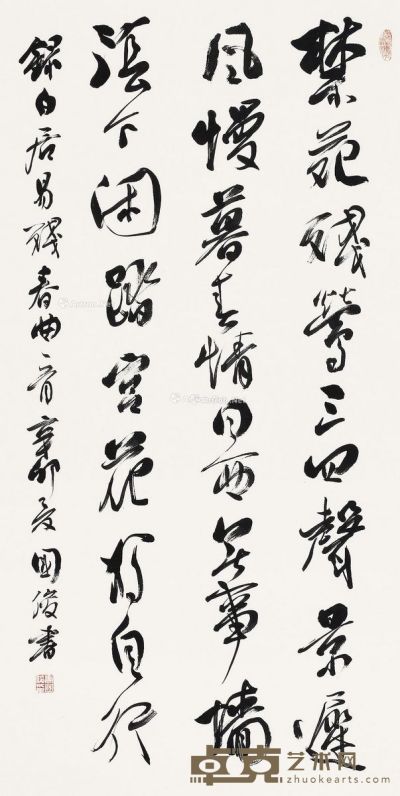 禁苑残莺三四声景迟
风慢暮春情日西无事墙
阴下闲踏宫花独自行
录白居易残春曲一首辛卯夏国俊书
卓克艺术网
zhuokearts.com